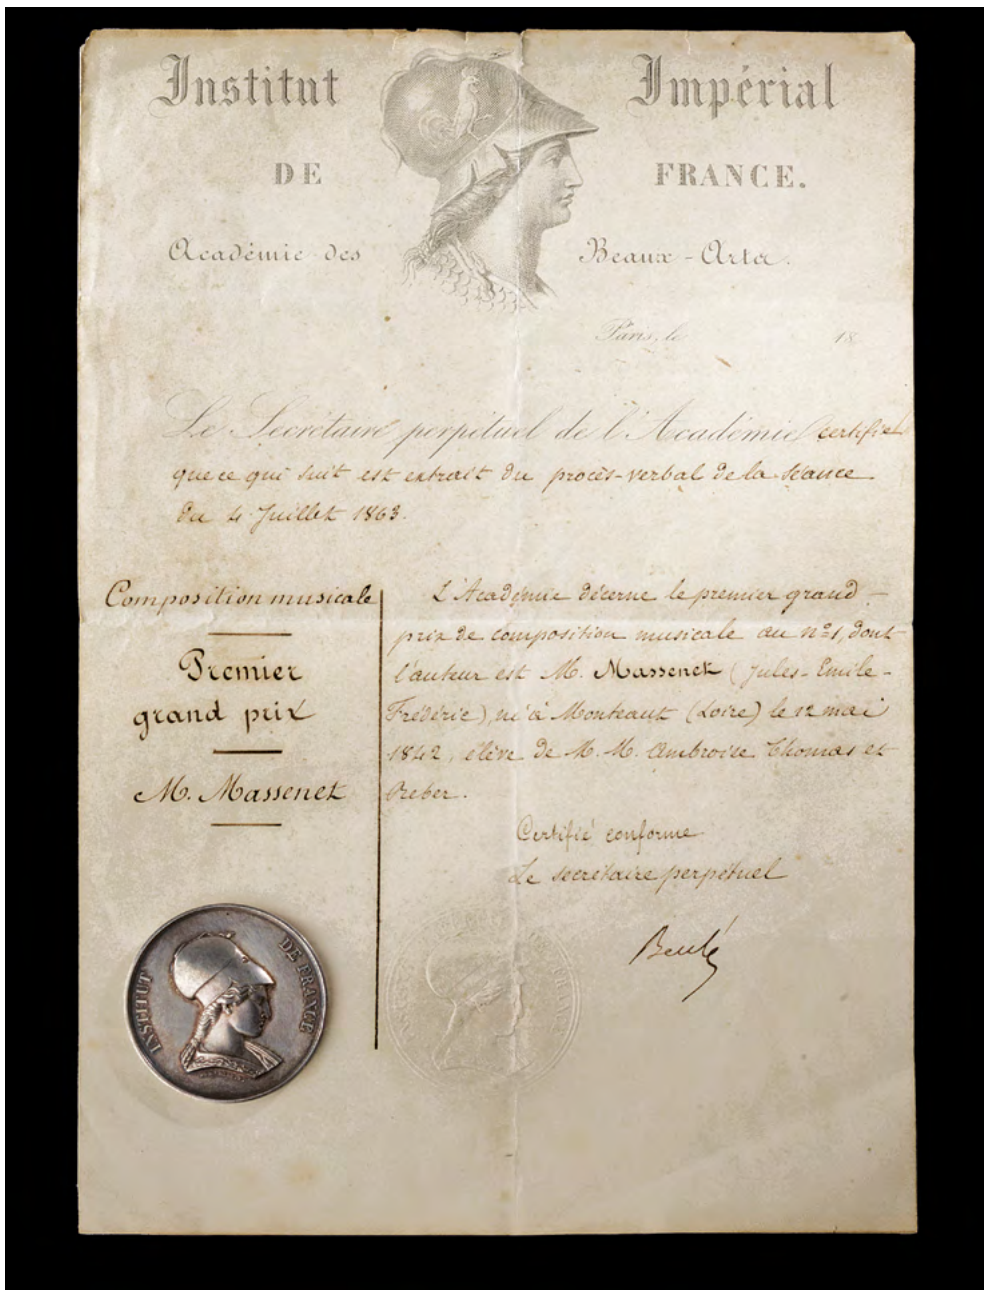 Institut Impérial
DE FRANCE.
Académie des Beaux-Arts.
Paris, le 18
Le Secrétaire perpétuel de l'Académie certifie
que ce qui suit est extrait du procès-verbal de la séance
du 4 Juillet 1863.
Composition musicale
Premier
grand prix
M. Massenet
L'Académie décerne le premier grand
prix de composition musicale au nº1, dont
l'auteur est M. Massenet (Jules-Emile-
Frédéric), né à Monteaut (Loire) le 12 mai
1842, élève de M. M. Ambroise Thomas et
Reber.
Certifié conforme
Le secrétaire perpétuel
Beulé
INSTITUT DE FRANCE